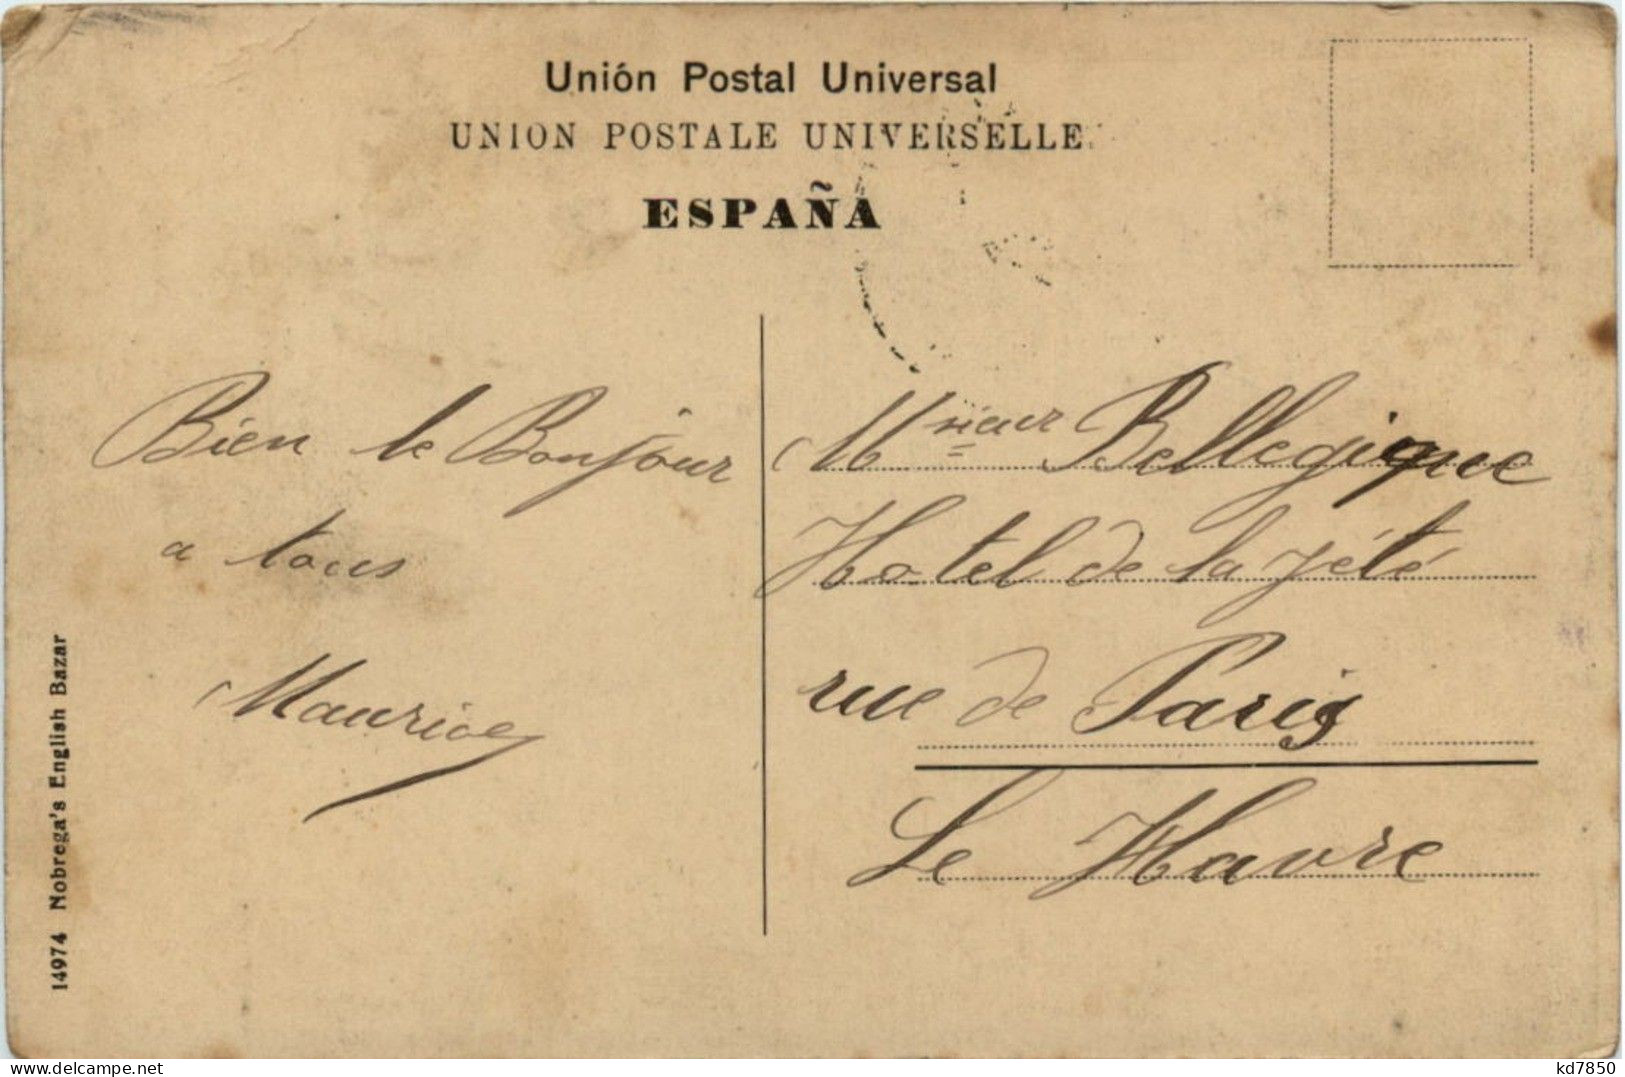 Unión Postal Universal
UNION POSTALE UNIVERSELLE
ESPAÑA
Bien le Bonjour
a tous
Maurice
Msieur Bellegique
Hotel de la jété
rue de Paris
Le Havre
14974 Nobrega's English Bazar
delcampe.net
kd7850